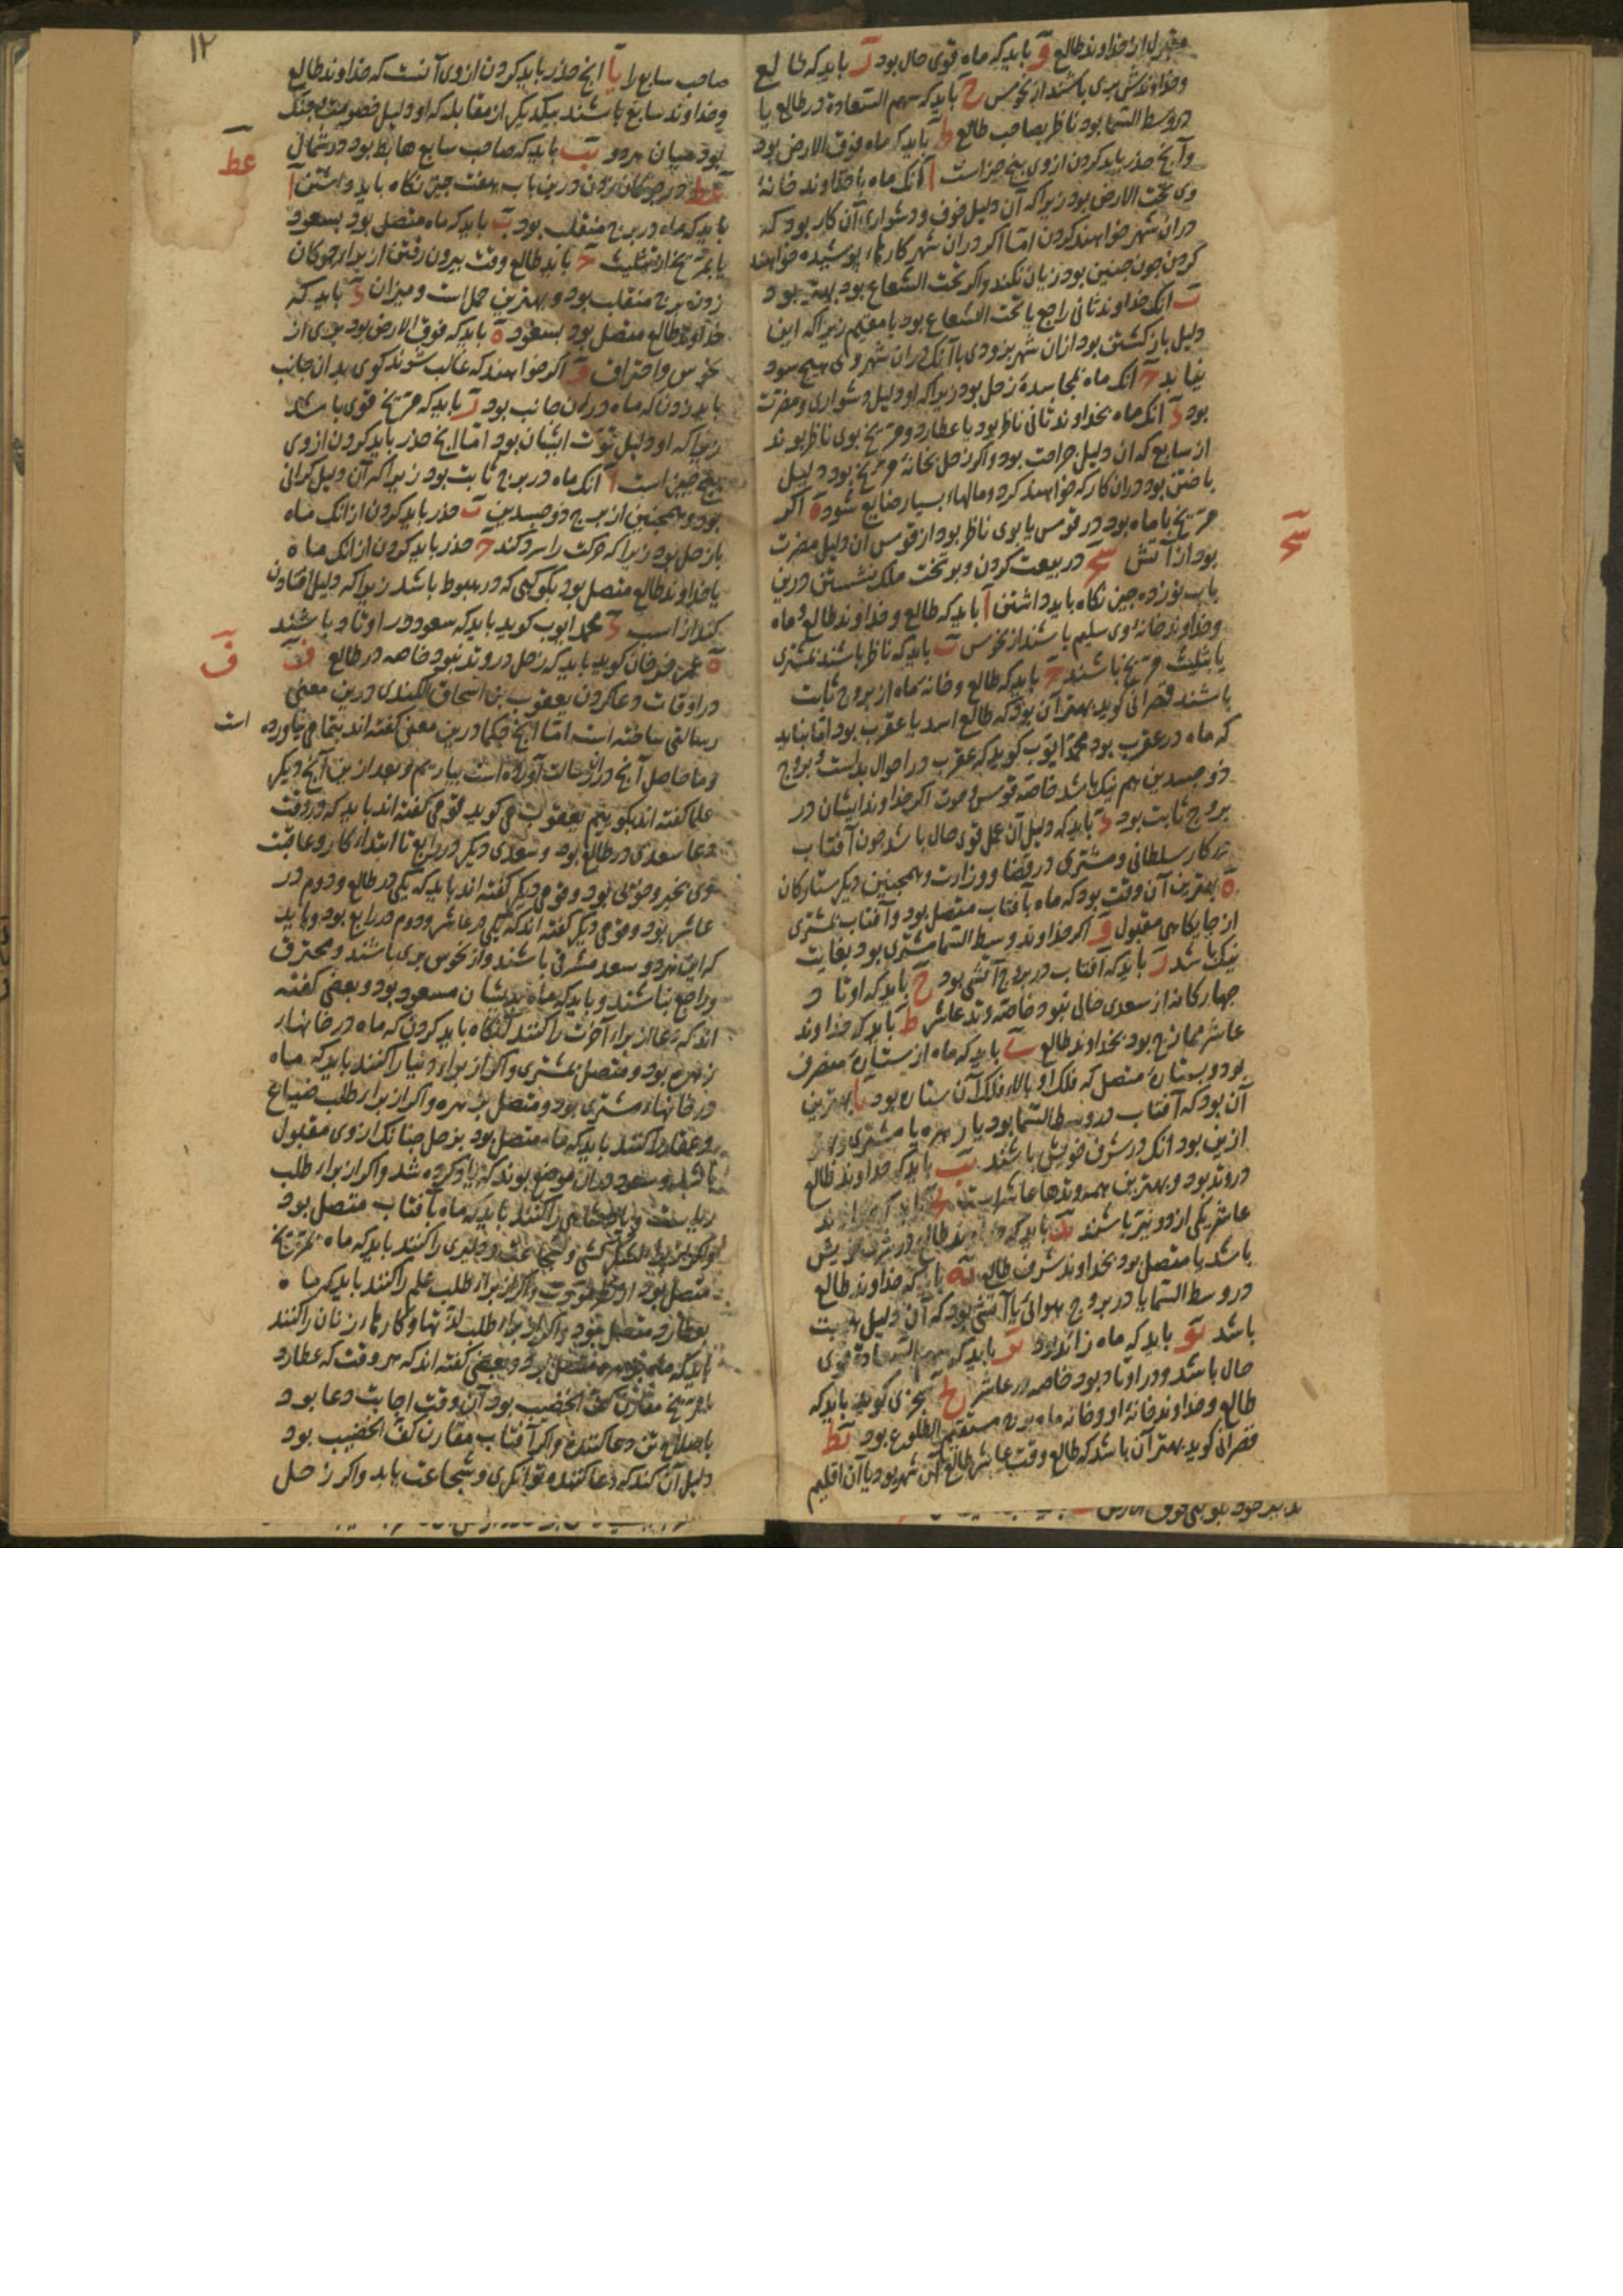 مقبول از خداوند طالع و باید که ماه قوی حال بود ز باید که طالع
و خداوندش بری باشند از نحوس ح باید که سهم السعادة در طالع یا
در وسط السما بود ناظر بصاحب طالع ط باید که ماه فوق الارض بود
و آنچ حذر باید کردن ازوی پنج چیز است ا آنک ماه یا خداوند خانهٔ
وی تحت الارض بود زیرا که آن دلیل خوف و دشواری آن کار بود که
دران شهر خواهند کردن اما اگر دران شهر کارهاء پوشیده خواهند
کردن چون چنین بود زیان نکند و اگر تحت الشعاع بود بهتر بود
ب آنک خداوند ثانی راجع یا تحت الشعاع بود یا مقیم زیرا که این
دلیل بازگشتن بود ازان شهر بزودی یا آنک دران شهر وی هیچ سود
نیابد ج آنک ماه بمجاسدهٔ زحل بود زیرا که او دلیل دشواری و مضرت
بود د آنک ماه بخداوند ثانی ناظر بود یا عطارد و مریخ بوی ناظر بوند
از سابع که آن دلیل جراحت بود و اگر زحل بخانهٔ مریخ بود دلیل
باختن بود دران کار که خواهند کرد و مالهاء بسیار ضایع شود ه اگر
مریخ با ماه بود در قوس یا بوی ناظر بود از قوس آن دلیل مضرت
بود از آتش عح در بیعت کردن و بر تخت ملک نشستن درین
باب نوزده چیز نگاه باید داشتن ا باید که طالع و خداوند طالع و ماه
و خداوند خانهٔ وی سلیم باشند از نحوس ب باید که ناظر باشند بمشتری
یا بتثلیث مریخ باشند ج باید که طالع و خانهٔ ماه از بروج ثابت
باشند قصرانی گوید بهتر آن بود که طالع اسد یا عقرب بود اما نباید
که ماه در عقرب بود محمد ایوب گوید که عقرب در احوال بدست و بروج
ذو جسدین هم نیک باشد خاصه قوس و حوت اگر خداوند ایشان در
بروج ثابت بود د باید که دلیل آن عمل قوی حال باشد چون آفتاب
در کار سلطانی و مشتری در قضا و وزارت و همچنین دیگر ستارکان
ه بهترین آن وقت بود که ماه بآفتاب متصل بود و آفتاب بمشتری
از جایگاهی مقبول و اگر خداوند وسط السما مشتری بود بغایت
نیک باشد ز باید که آفتاب در بروج آتشی بود ح باید که اوتاد
چهارکانه از سعدی خالی نبود خاصه وتد عاشر ط باید که خداوند
عاشر ممازج بود بخداوند طالع ی باید که ماه از ستارهٔ منصرف
بود و بستارهٔ متصل که فلک او بالاء فلک آن ستاره بود یا بهترین
آن بود که آفتاب در وسط السما بود یا زهره یا مشتری و بهتر
ازین بود آنک در شرف خویش باشند یب باید که خداوند طالع
در وتد بود و بهترین همه وتدها عاشر است یج باید که خداوند
عاشر یکی از دو نیر باشند ید باید که خداوند طالع در شرف خویش
باشد یا متصل بود بخداوند شرف طالع یه باید که خداوند طالع
در وسط السما یا در بروج هوائی یا آتشی بود که آن دلیل هیبت
باشد یو باید که ماه زائد بود یز باید که سهم السعادة قوی
حال باشد و در اوتاد بود خاصه در عاشر یح سجزی گوید باید که
طالع و خداوند خانهٔ او و خانهٔ ماه بروج مستقیم الطلوع بود یط
قصرانی گوید بهتر آن باشد که طالع وقت عاشر طالع آن شهر بود یا آن اقلیم
عح
۱۲
صاحب سابع را یا آنچ حذر باید کردن ازوی آنست که خداوند طالع
و خداوند سابع باشند بیکدیگر از مقابله که او دلیل خصومت و جنگ
بود میان هر دو یب باید که صاحب سابع هابط بود در شمال
عط در چوگان زدن درین باب هفت چیز نگاه باید داشتن ا
باید که ماه در برج منقلب بود ب باید که ماه متصل بود بسعود
یا بمریخ از تثلیث ج باید طالع وقت بیرون رفتن از براء چوگان
زدن برج منقلب بود و بهترین حمل است و میزان د باید که
خداوند طالع متصل بود بسعود ه باید که فوق الارض بود بری از
نحوس و احتراق و اگر خواهند که غالب شوند گوی بدان جانب
باید زدن که ماه دران جانب بود ز باید که مریخ قوی باشد
زیرا که او دلیل قوت ایشان بود اما آنچ حذر باید کردن ازوی
پنج چیز است ا آنک ماه در برج ثابت بود زیرا که آن دلیل گرانی
بود و همچنین از برج ذو جسدین ب حذر باید کردن از آنک ماه
با زحل بود زیرا که حرکت را سرد کند ج حذر باید کردن از آنک ماه
یا خداوند طالع متصل بود بکوکبی که در هبوط باشد زیرا که دلیل افتادن
کند از اسب د محمد ایوب گوید باید که سعود در اوتاد باشند
ه عمر فرخان گوید باید که زحل در وتد نبود خاصه در طالع ف
در اوقات دعا کردن یعقوب بن اسحاق الکندی درین معنی
رسالتی ساخته است اما آنچ حکما درین معنی گفته اند بتمامی نیاورده است
و ما حاصل آنچ دران رسالت آورده است بیاریم و بعد ازین آنچ دیگر
علما گفته اند بگوییم یعقوب می گوید قومی گفته اند باید که در وقت
دعا سعدی در طالع بود و سعدی دیگر در رابع تا ابتداء کار و عاقبت
وی بخیر و خوبی بود و قومی دیگر گفته اند باید که یکی در طالع و دوم در
عاشر بود و قومی دیگر گفته اند که یکی در عاشر و دوم در رابع بود و باید
که این هر دو سعد مشرقی باشند و از نحوس بری باشند و محترق
و راجع نباشند و باید که ماه بدیشان مسعود بود و بعضی گفته
اند که دعا از براء آخرت را کنند نگاه باید کردن که ماه در خانهاء
زهره بود و متصل بمشتری و اگر از براء دنیا را کنند باید که ماه
در خانهاء مشتری بود و متصل بزهره و اگر از براء طلب ضیاع
و عقار را کنند باید که ماه متصل بود بزحل چنانک ازوی مقبول
باشد و سعود دران موضع بوند که یاد کرده شد و اگر از براء طلب
ریاست و پادشاهی را کنند باید که ماه بآفتاب متصل بود
و اگر از براء لشکر کشی و شجاعت و دلیری را کنند باید که ماه بمریخ
متصل بود و اگر از براء طلب علم را کنند باید که ماه
بعطارد متصل بود و اگر از براء طلب لذتها و کارهاء زنان را کنند
باید که ماه بزهره متصل بود و بعضی گفته اند که هر وقت که عطارد
یا مریخ مقارن کف الخضیب بود آن وقت اجابت دعا بود
باصلاح تن دعا کننده و اگر آفتاب مقارن کف الخضیب بود
دلیل آن کند که دعا کننده توانگری و شجاعت یابد و اگر زحل
عط
ف